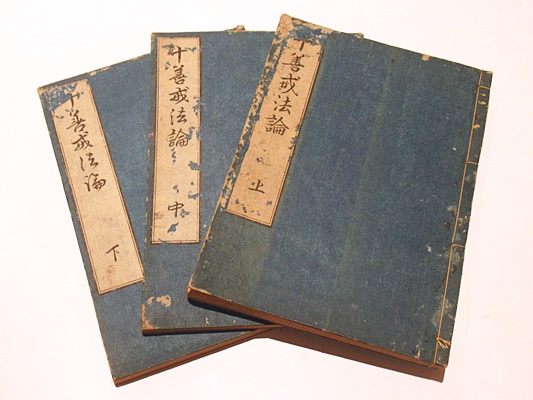 十善戒法論 上
十善戒法論 中
十善戒法論 下